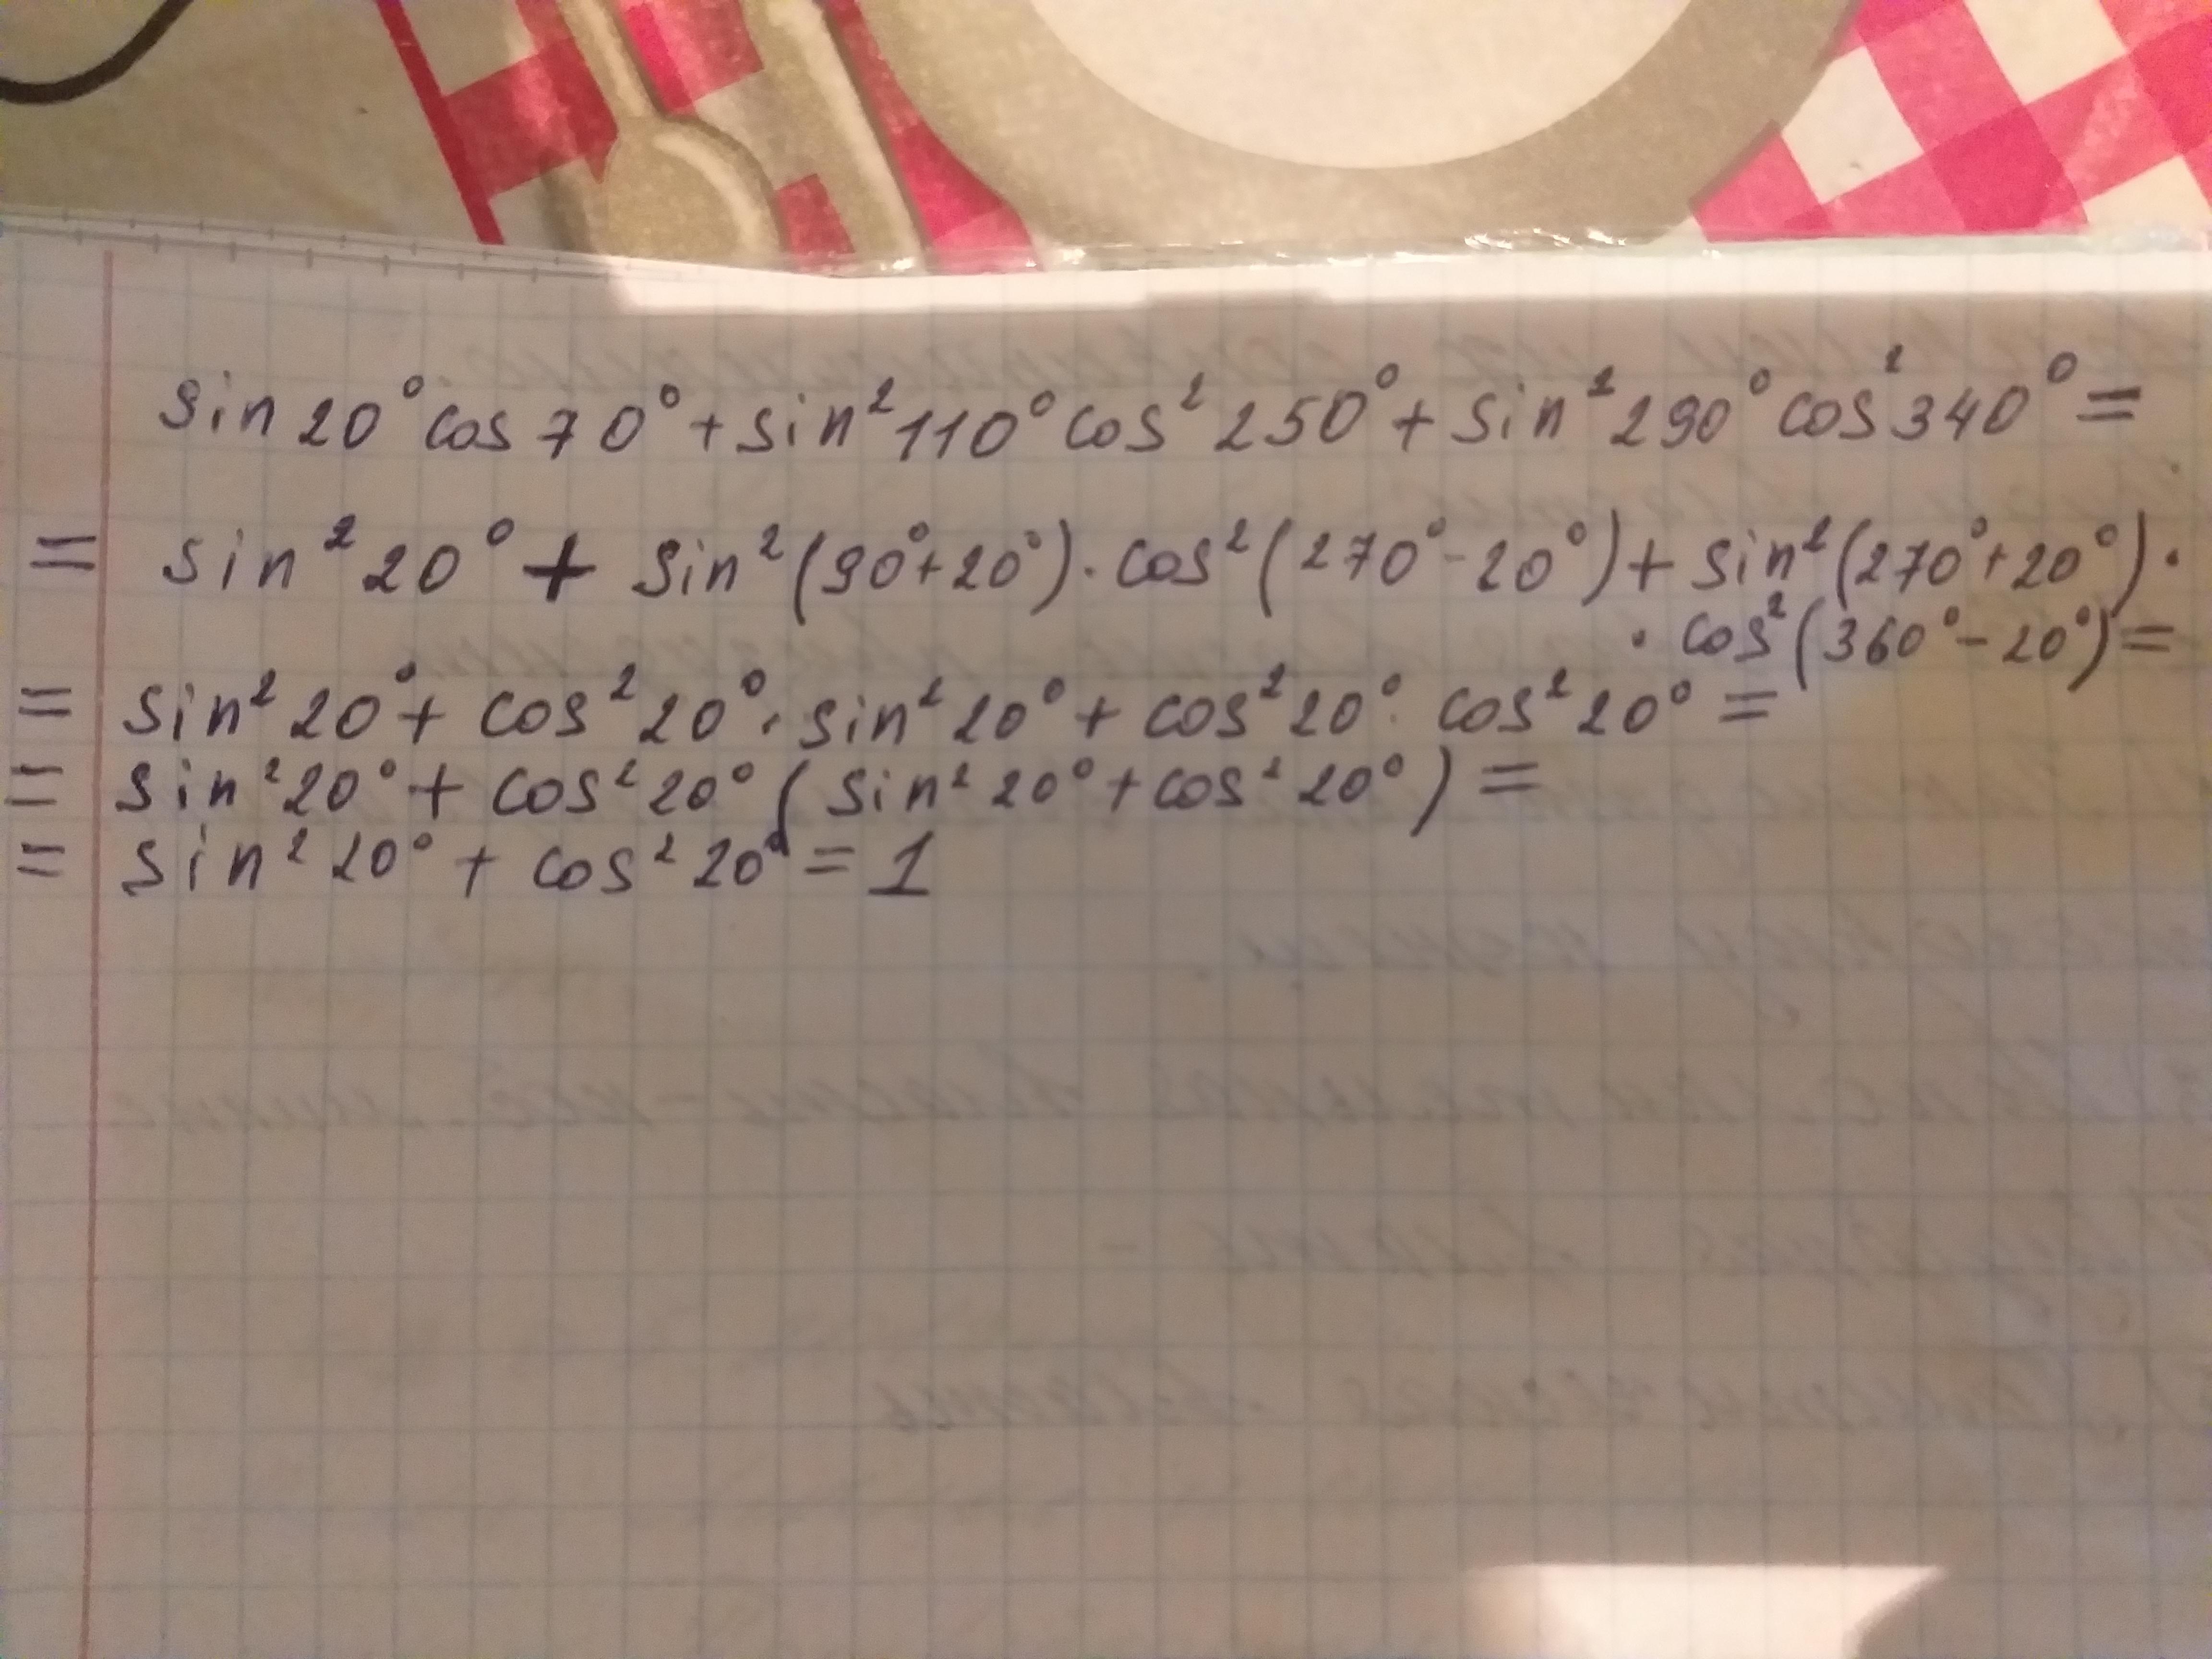 sin 20° cos 70° + sin² 110° cos² 250° + sin² 290° cos² 340° =
= sin² 20° + sin² (90° + 20°) · cos² (270° - 20°) + sin² (270° + 20°) ·
· cos² (360° - 20°) =
= sin² 20° + cos² 20° · sin² 20° + cos² 20° · cos² 20° =
= sin² 20° + cos² 20° ( sin² 20° + cos² 20° ) =
= sin² 20° + cos² 20° = 1